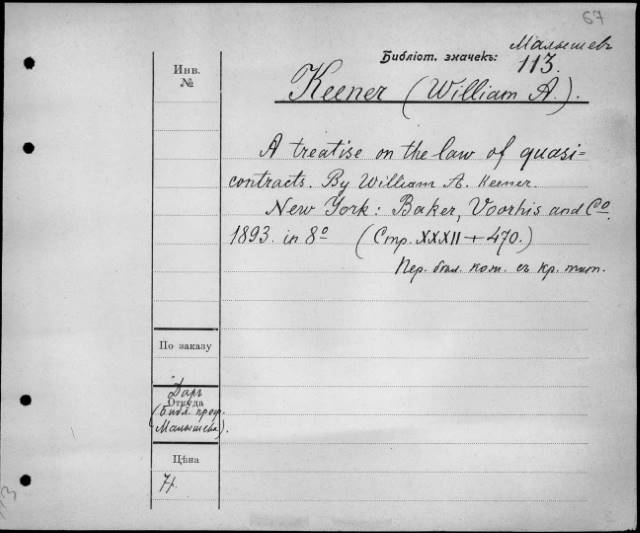 67
Малышевъ
Библіот. значекъ: 113.
Инв.
№
Keener (William A.).
A treatise on the law of quasi=
contracts. By William A. Keener.
New York: Baker, Voorhis and Co.
1893. in 8º (Стр. XXXII + 470.)
Пер. бѣл. кож. съ кр. тит.
По заказу
Даръ
Откуда
(Библ. проф.
Малышева).
Цѣна
7 f.
113